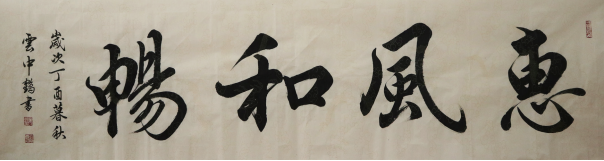 惠風和暢
歲次丁酉暮秋
雲中鶴書